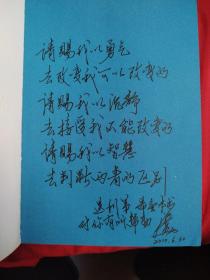 请赐我以勇气
去改变我可以改变的
请赐我以冷静
去接受我不能改变的
请赐我以智慧
去判断两者的区别
送利军 希望本书
对你有所帮助